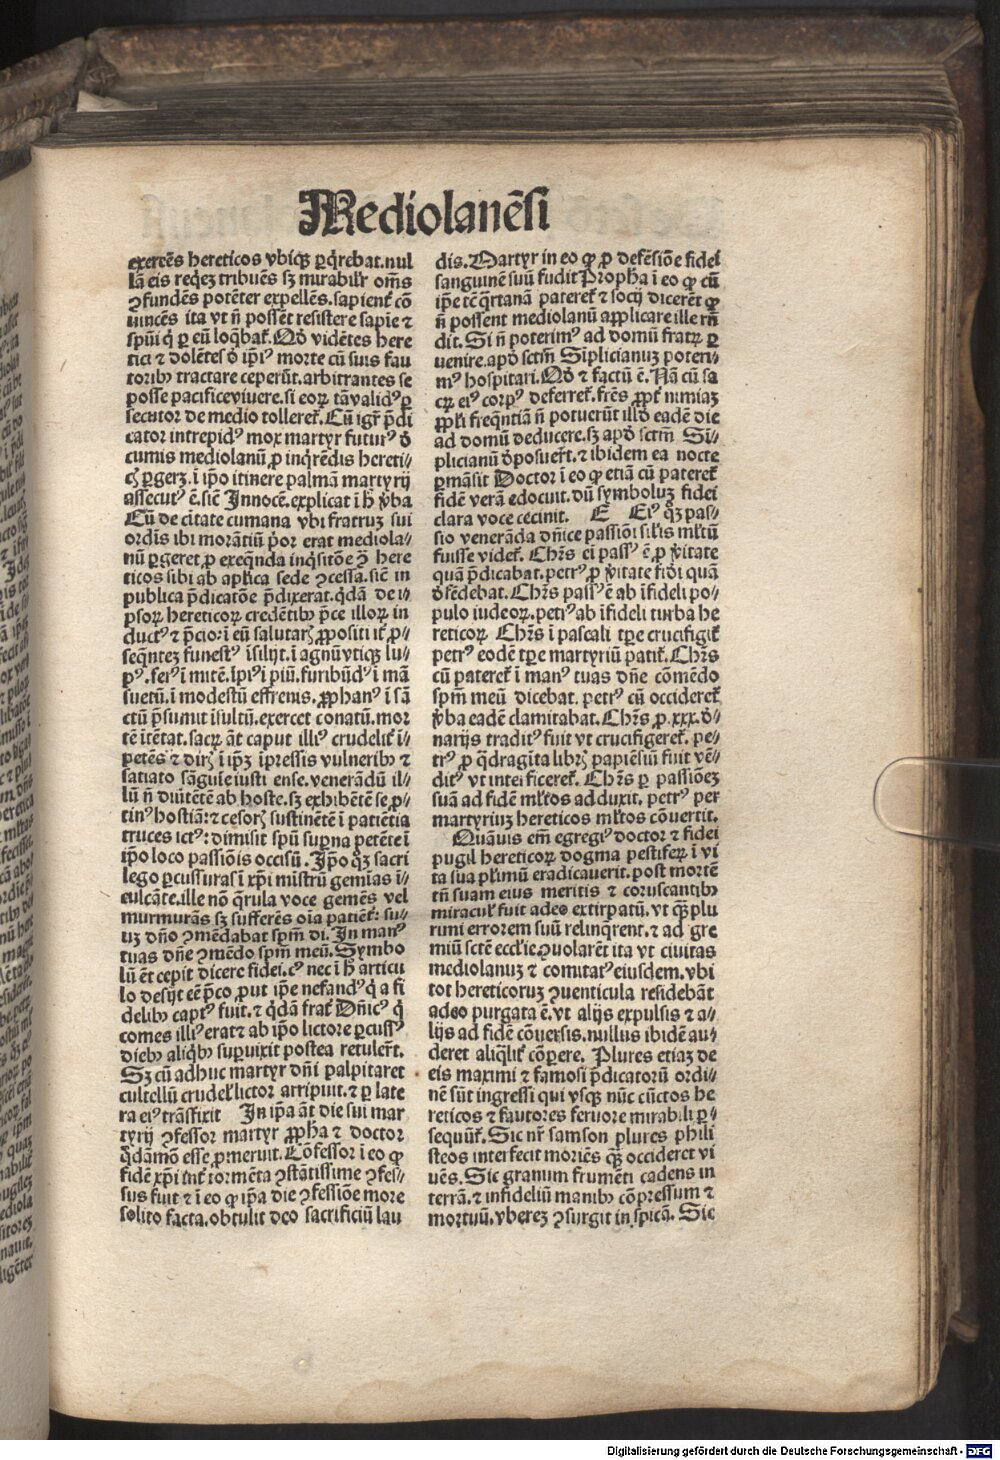 Mediolanēsi
exercēs hereticos vbicꝫ ꝑq̇rebat.nul
lā eis reqeꝫ tribuēs sꝫ mirabilr̄ om̄s
ꝯfundēs potēter expellēs.sapient̄ cō
uincēs ita vt n̄ possēt resistere sapīe ⁊
spūi q̇ ꝑ eū loq̄bat̄.Qḋ vidētes here
tici ⁊ dolētes ḋ ip̄iꝰ morte cū suis fau
toribꝰ tractare ceperūt.arbitrantes se
posse pacifice viuere.si eoꝝ tā validꝰ ꝑ
secutor de medio tolleret̄.Cū igr̄ p̄di
cator intrepidꝰ mox martyr futurꝰ ḋ
cumis mediolanū ꝓ inq̇rēdis hereti⸗
cꝭ ꝑgerꝫ.ī ip̄o itinere palmā martyrij
assecutꝰ ē.sic̄ Innocē.explicat ī h̄ v̄ba
Cū de citate cumana vbi fratruꝫ sui
ordīs ibi morātiū p̄or erat mediola⸗
nū ꝑgeret ꝓ exeqnda inq̇sitōe ꝯ̄ here
ticos sibi ab apl̄ica sede ꝯcessa.sic̄ in
publica p̄dicatōe p̄dixerat.q̇dā de i⸗
psoꝝ hereticoꝝ credētibꝰ p̄ce illoꝝ in
ductꝰ ⁊ p̄cio:ī eū salutarꝭ ꝓpositi it̄ ꝓ⸗
seq̄nteꝫ funestꝰ īsilijt.ī agnū vtiqꝫ lu⸗
pꝰ.ferꝰ ī mitē.īpiꝰ ī piū.furibūdꝰ ī mā
suetū.ī modestū effrenis.ꝓphanꝰ ī sā
ctū p̄sumit īsultū.exercet conatū.mor
tē ītētat.sacꝝ āt caput illiꝰ crudelit̄ ī⸗
petēs ⁊ dirꝭ ī ip̄ꝫ īpressis vulneribꝰ ⁊
satiato sāguīe iusti ense.venerādū il⸗
lū n̄ diu̇tētē ab hoste.sꝫ exhibētē se ꝓ⸗
tinꝰ hostiā:⁊ cesorꝭ sustinētē ī patiētia
truces ictꝰ:dimisit spū suꝑna petēte ī
ip̄o loco passiōis occisū.Ip̄o qꝫ sacri
lego ꝑcussuras ī xp̄i mīstrū gemīas ī⸗
culcāte.ille nō q̄rula voce gemēs vel
murmurās sꝫ sufferēs oīa patiēt̄:su⸗
uꝫ dn̄o ꝯmēdabat spm̄ di.In manꝰ
tuas dn̄e ꝯmēdo spm̄ meū.Symbo
lū ēt cepit dicere fidei.cꝰ nec ī h̄ articu
lo desijt eē p̄co ꝓut ip̄e nefandꝰ q̇ a fi
delibꝰ captꝰ fuit.⁊ q̇dā frat̄ Dn̄icꝰ q̇
comes illiꝰ erat ⁊ ab ip̄o lictore ꝑcussꝰ
diebꝰ aliqbꝰ suꝑuixit postea retulert̄.
Sꝫ cū adhuc martyr dn̄i palpitaret
cultellū crudel̓ lictor arripuit.⁊ ꝑ late
ra eiꝰ trāsfixit In ip̄a āt die sui mar
tyrij ꝯfessor martyr ꝓpha ⁊ doctor
q̇dāmō esse ꝓmeruit.Cōfessor ī eo ꝙ
fidē xp̄i int̄ tormēta ꝯstātissime ꝯfes⸗
sus fuit ⁊ ī eo ꝙ ip̄a die ꝯfessiōe more
solito facta.obtulit deo sacrificiū lau
dis.Martyr in eo ꝙ ꝓ defēsiōe fidei
sanguinē suū fudit Propha ī eo ꝙ cū
ip̄e tē q̄rtanā pateret̄ ⁊ socij dicerēt ꝙ
n̄ possent mediolanū applicare ille rn̄
dit.Si n̄ poterimꝰ ad domū fratꝝ ꝑ
uenire.apḋ sctm̄ Siplicianuꝫ poteri⸗
mꝰ hospitari.Qḋ ⁊ factū ē.Nā cū sa
cꝝ eiꝰ corpꝰ deferret̄.fr̄es ꝓpt̄ nimiaꝫ
ppl̄i freqntiā n̄ potuerūt illḋ eadē die
ad domū deducere.sꝫ apḋ sctm̄ Si⸗
plicianū ḋposuer̄t.⁊ ibidem ea nocte
ꝑmāsit Doctor ī eo ꝙ etiā cū pateret̄
fidē verā edocuit.dū symboluꝫ fidei
clara voce cecinit. E Eiꝰ qꝫ pas⸗
sio venerāda dn̄ice passiōi sil̓is ml̄tū
fuisse videt̄. Chr̄s ei passꝰ ē ꝓ v̇itate
quā p̄dicabat.petrꝰ ꝓ v̇itate fidi quā
ḋfēdebat.Chr̄s passꝰ ē ab īfideli po⸗
pulo iudeoꝝ.petrꝰ ab īfideli turba he
reticoꝝ Chr̄s ī pascali tꝑe crucifigit̄
petrꝰ eodē tꝑe martyriū patit̄.Chr̄s
cū pateret̄ ī manꝰ tuas dn̄e cōmēdo
spm̄ meū dicebat.petrꝰ cū occideret̄
v̇ba eadē clamitabat.Chr̄s ꝓ.xxx.ḋ⸗
narijs traditꝰ fuit vt crucifigeret̄.pe⸗
trꝰ ꝓ q̄dragīta librꝭ papiēsiū fuit vē⸗
ditꝰ vt interficeret̄.Chr̄s ꝑ passiōeꝫ
suā ad fidē ml̄tos adduxit.petrꝰ per
martyriuꝫ hereticos ml̄tos cōuertit.
Quāuis em̄ egregiꝰ doctor ⁊ fidei
pugil hereticoꝝ dogma pestifeꝝ ī vi
ta sua pl̄imū eradicauerit.post mortē
tn̄ suam eius meritis ⁊ coruscantibꝰ
miracul̓ fuit adeo extirpatū.vt q̄ꝫplu
rimi errorem suū relinq̄rent.⁊ ad gre
miū sctē eccl̄ie ꝯuolarēt ita vt ciuitas
mediolanuꝫ ⁊ comitatꝰ eiusdem.vbi
tot hereticoruꝫ ꝯuenticula residebāt
adeo purgata ē.vt alijs expulsis ⁊ a⸗
lijs ad fidē cōuersis.nullus ibidē au⸗
deret aliq̄lit̄ cōꝑere. Plures etiaꝫ de
eis maximi ⁊ famosi p̄dicatorū ordi⸗
nē sūt ingressi qui vsqꝫ nūc cūctos he
reticos ⁊ fautores feruore mirabili ꝑ⸗
sequūt̄.Sic nr̄ samson plures phili
steos interfecit moriēs q̄ꝫ occideret vi
uēs.Sic granum frumēti cadens in
terrā.⁊ infideliū manibꝰ cōpressum ⁊
mortuū.vbereꝫ ꝯsurgit in spicā. Sic
Digitalisierung gefördert durch die Deutsche Forschungsgemeinschaft - DFG